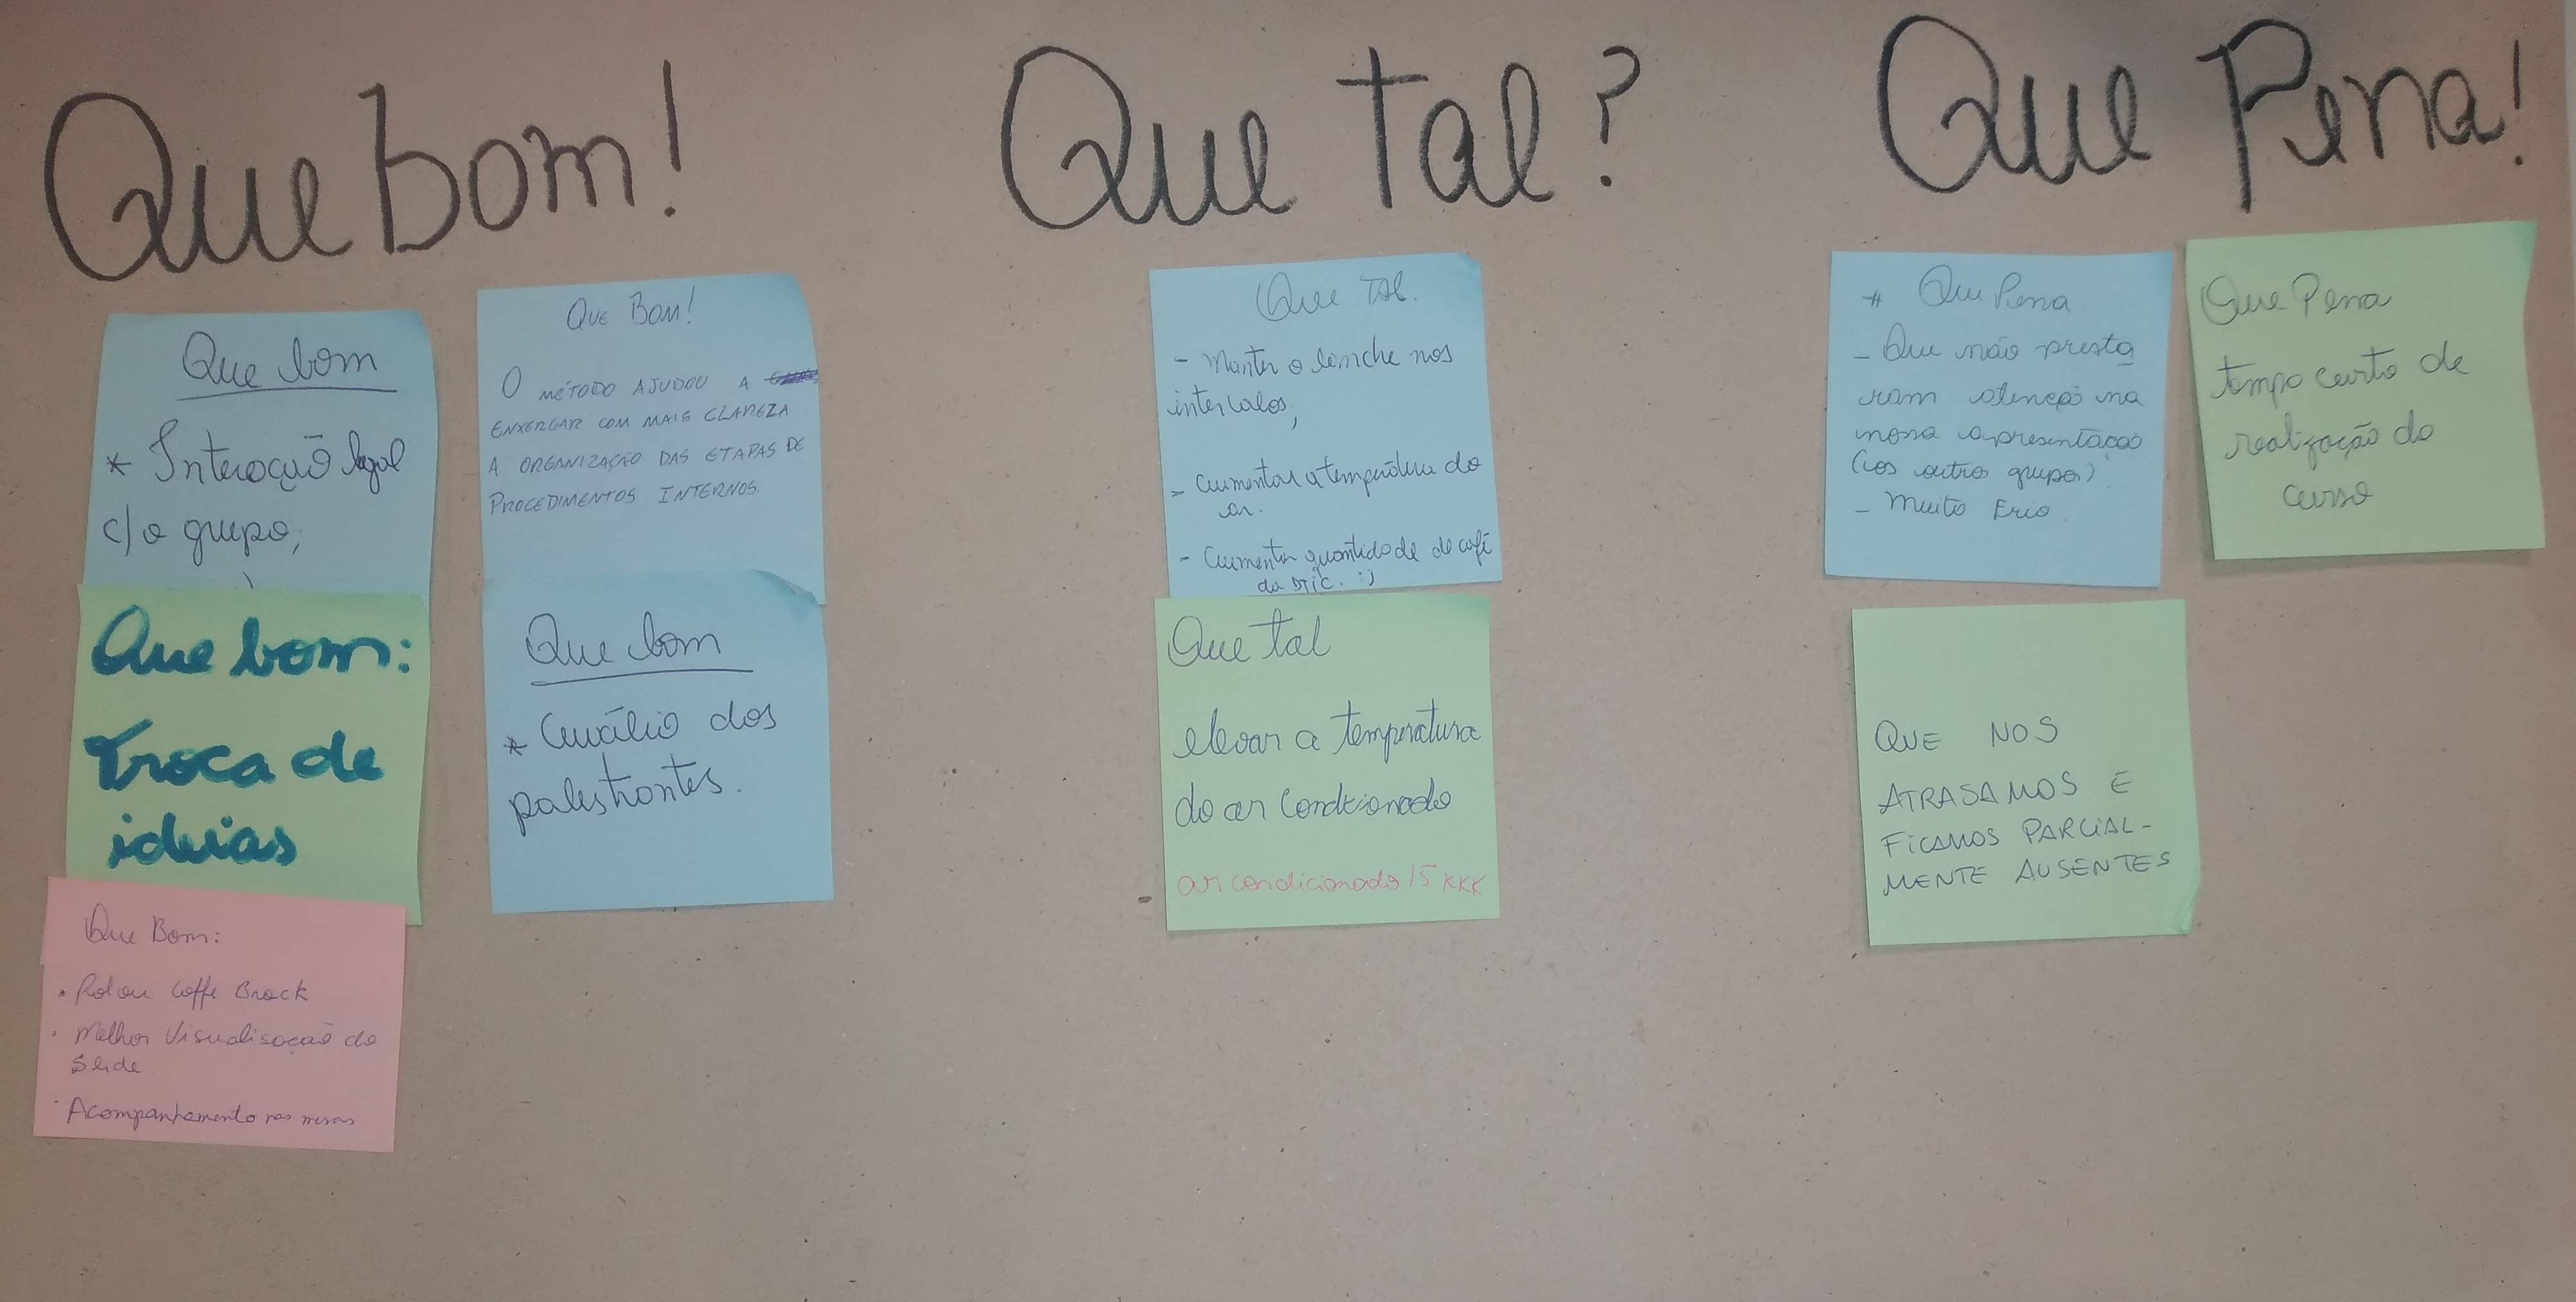 Que bom!
Que bom
* Interação legal
c/o grupo;
Que bom:
Troca de
ideias
Que Bom:
• Rolou Coffe Brack
• Melhor Visualisação do
Slide
• Acompanhamento nas mesas
QUE BOM!
O MÉTODO AJUDOU A
ENXERGAR COM MAIS CLAREZA
A ORGANIZAÇÃO DAS ETAPAS DE
PROCEDIMENTOS INTERNOS.
Que bom
* Auxílio dos
palestrantes.
Que tal?
Que TAL.
- Manter o lanche nos
intervalos;
- Aumentar a temperatura do
ar.
- Aumentar quantidade de café
da DTIC. :)
Que tal
elevar a temperatura
do ar condicionado
ar condicionado 15 KKK
Que Pena!
* Que Pena
- Que não presta
ram atenção na
nossa apresentação
(os outros grupos)
- Muito Frio
Que Pena
tempo curto de
realização do
curso
QUE NOS
ATRASAMOS E
FICAMOS PARCIAL-
MENTE AUSENTES